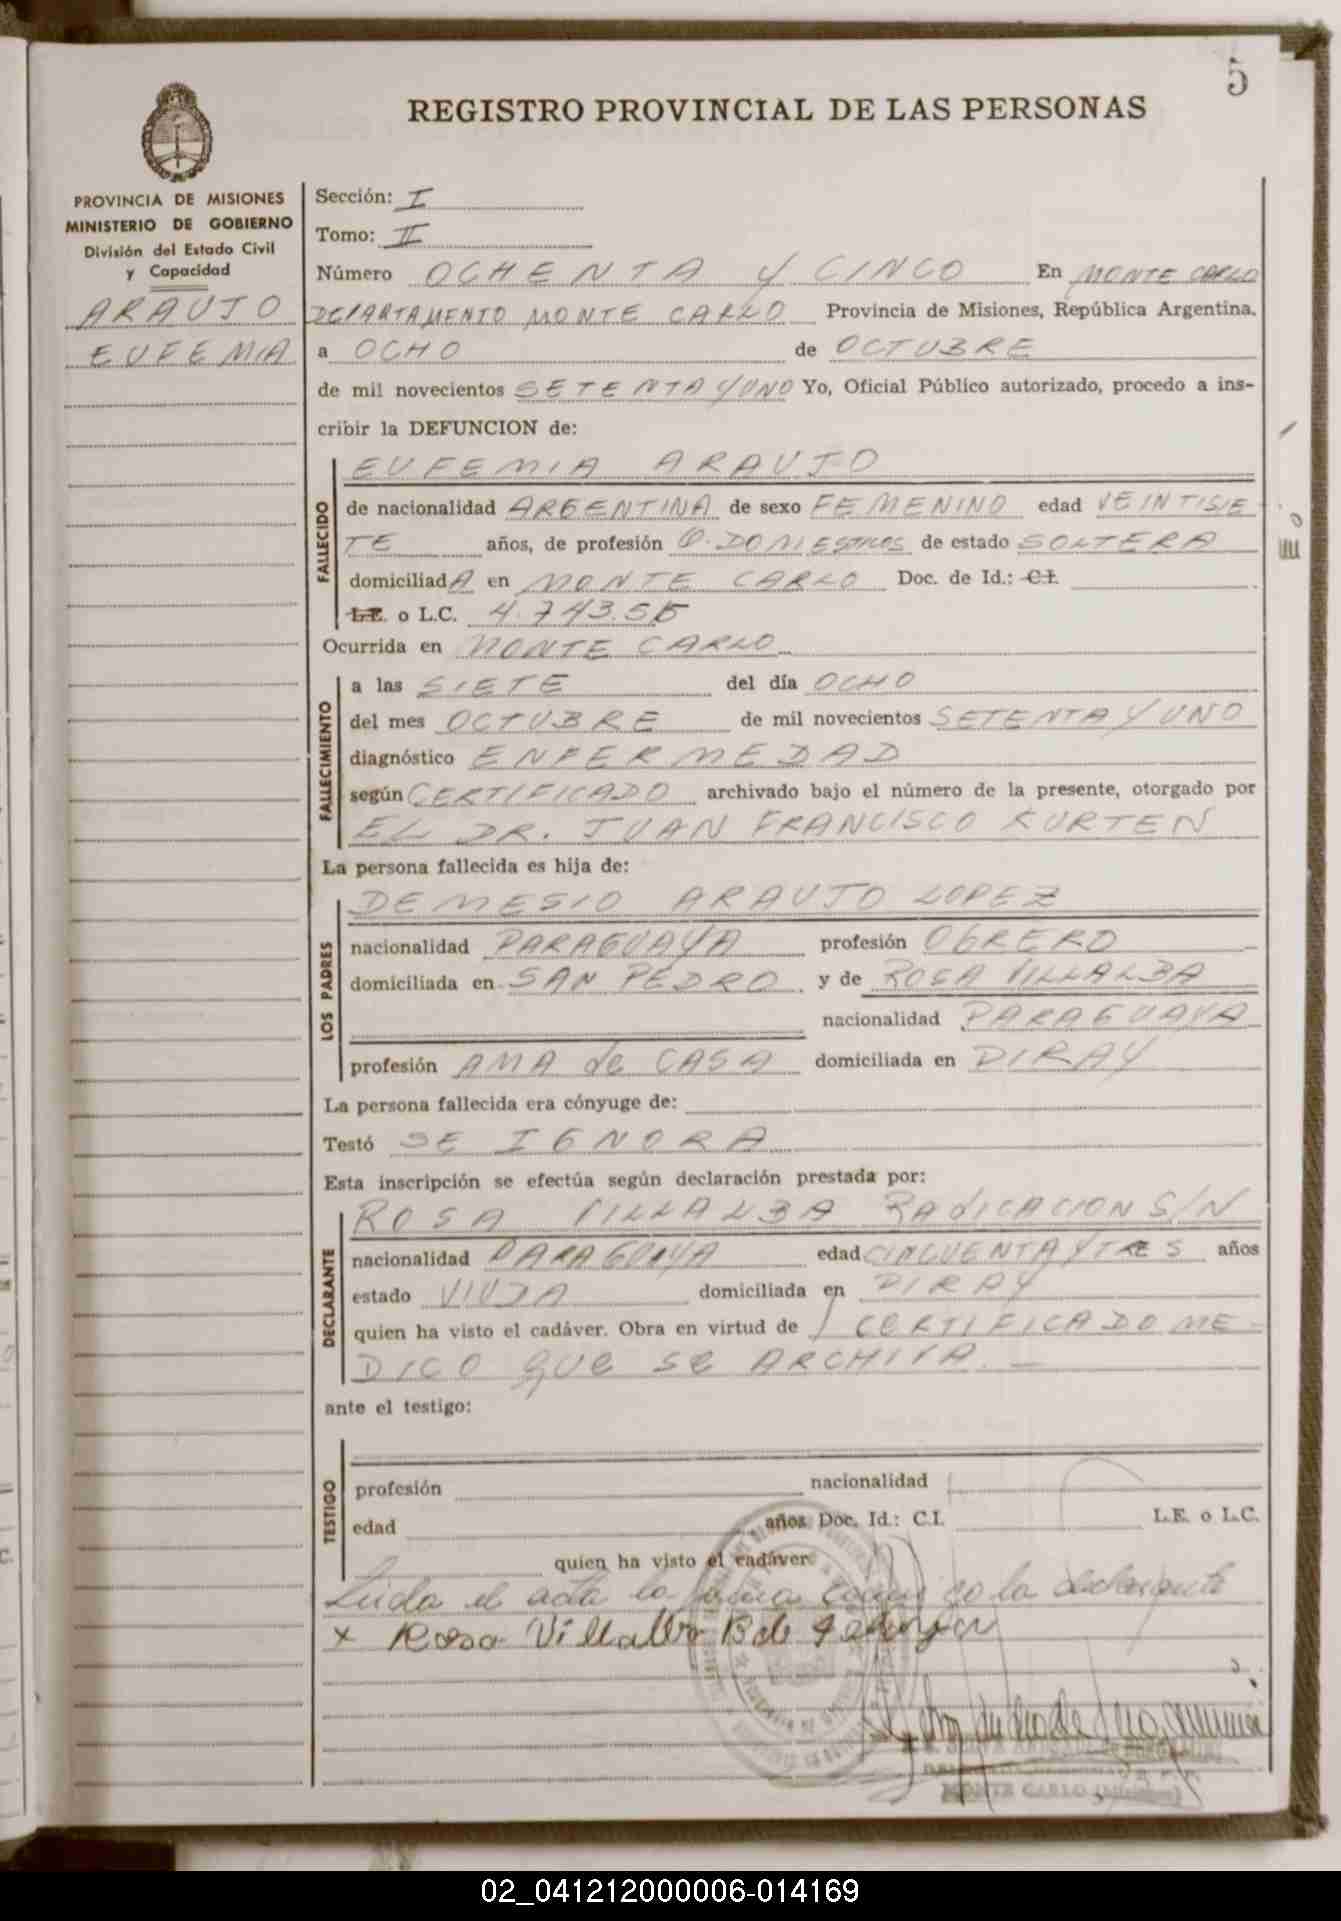 5
REGISTRO PROVINCIAL DE LAS PERSONAS
PROVINCIA DE MISIONES
MINISTERIO DE GOBIERNO
División del Estado Civil
y Capacidad
ARAUJO
EUFEMIA
Sección: I
Tomo: II
Número OCHENTA Y CINCO En MONTE CARLO
DEPARTAMENTO MONTE CARLO Provincia de Misiones, República Argentina,
a OCHO de OCTUBRE
de mil novecientos SETENTA Y UNO Yo, Oficial Público autorizado, procedo a ins-
cribir la DEFUNCION de:
FALLECIDO
EUFEMIA ARAUJO
de nacionalidad ARGENTINA de sexo FEMENINO edad VEINTISIE
TE años, de profesión Q. DOMESTICOS de estado SOLTERA
domiciliadA en MONTE CARLO Doc. de Id.: C.I.
L.E. o L.C. 4.743.515
Ocurrida en MONTE CARLO
FALLECIMIENTO
a las SIETE del día OCHO
del mes OCTUBRE de mil novecientos SETENTA Y UNO
diagnóstico ENFERMEDAD
según CERTIFICADO archivado bajo el número de la presente, otorgado por
EL DR. JUAN FRANCISCO KURTEN
La persona fallecida es hija de:
LOS PADRES
DEMESIO ARAUJO LOPEZ
nacionalidad PARAGUAYA profesión OBRERO
domiciliada en SAN PEDRO y de ROSA VILLALBA
nacionalidad PARAGUAYA
profesión AMA de CASA domiciliada en PIRAY
La persona fallecida era cónyuge de:
Testó SE IGNORA
Esta inscripción se efectúa según declaración prestada por:
DECLARANTE
ROSA VILLALBA RADICACION S/N
nacionalidad PARAGUAYA edad CINCUENTA Y TRES años
estado VIUDA domiciliada en PIRAY
quien ha visto el cadáver. Obra en virtud de / CERTIFICADO ME-
DICO QUE SE ARCHIVA.—
ante el testigo:
TESTIGO
profesión nacionalidad
edad años Doc. Id.: C.I. L.E. o L.C.
quien ha visto el cadáver
Leida el acta la firma conmigo la declarante
x Rosa Villalba B de
MONTE CARLO (Misiones)
02_041212000006-014169